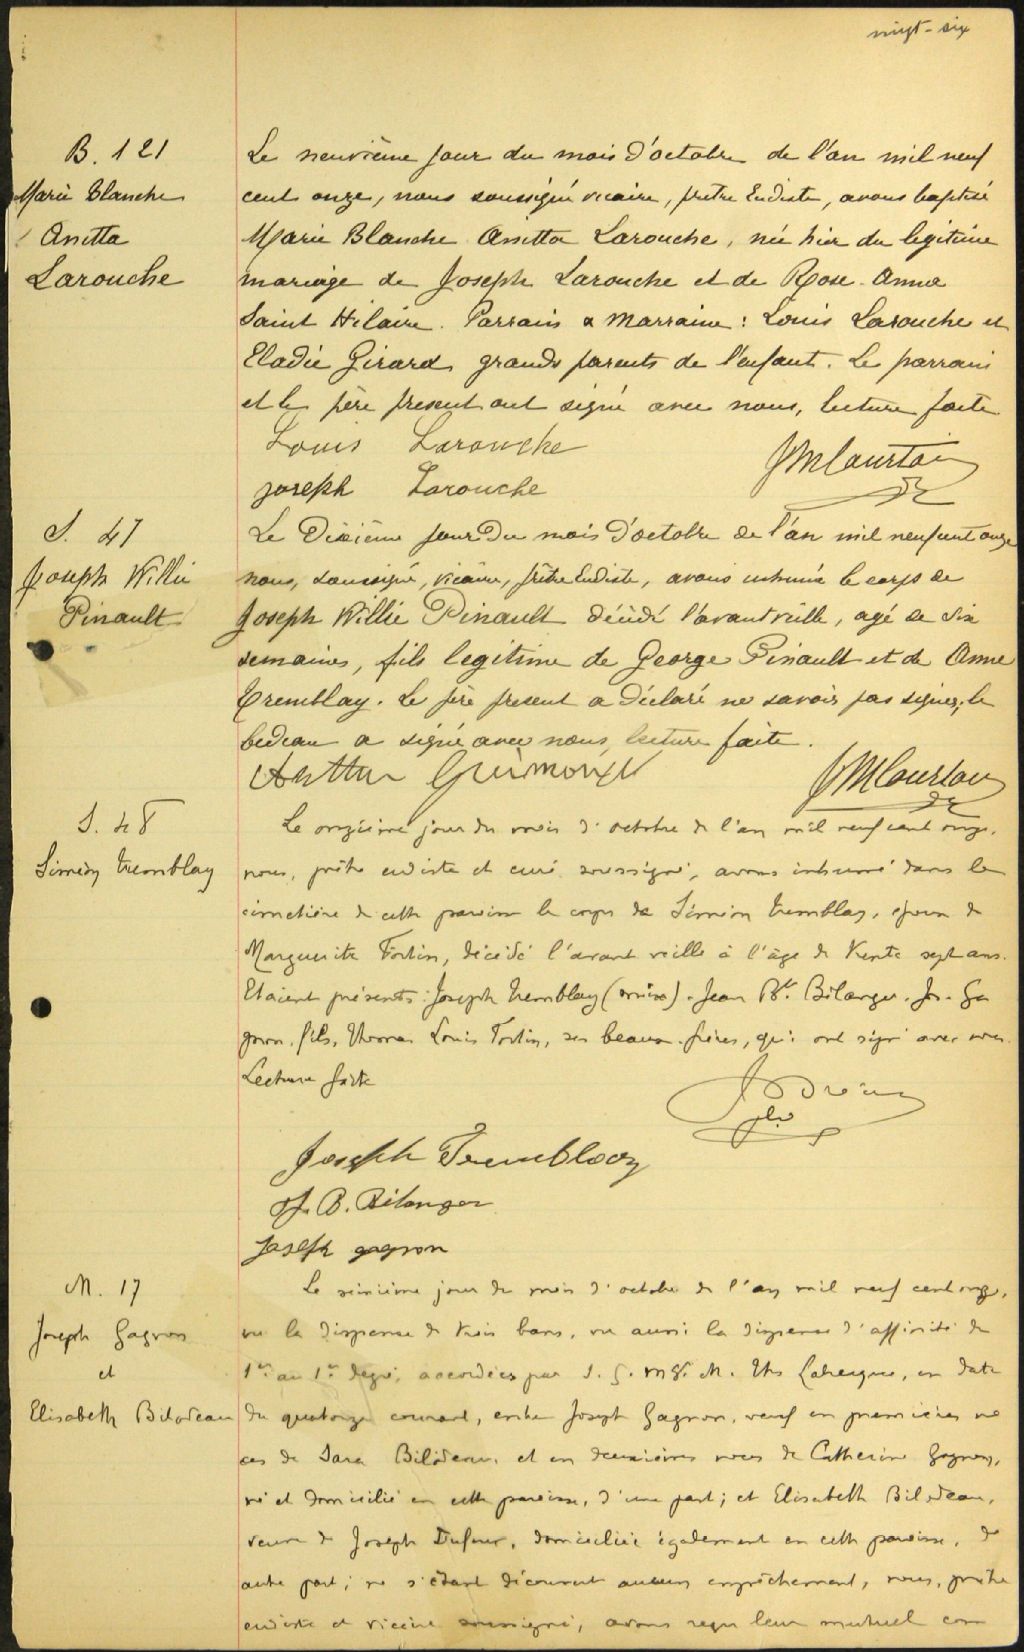 vingt-six
B. 121
Marie Blanche
Anitta
Larouche
Le neuvième jour du mois d'octobre de l'an mil neuf
cent onze, nous soussigné vicaire, prêtre Eudiste, avons baptisé
Marie Blanche Anitta Larouche, née hier du legitime
mariage de Joseph Larouche et de Rose-Anna
Saint Hilaire. Parrain & Marraine : Louis Larouche et
Eladie Girard grands parents de l'enfant. Le parrain
et le père present ont signé avec nous, lecture faite
Louis Larouche
Joseph Larouche
S. 47
Joseph Willie
Pinault
Le Dixième jour Du mois d'octobre de l'an mil neuf cent onze
nous, soussigné, vicaire, prêtre Eudiste, avons inhumé le corps de
Joseph Willie Pinault décédé l'avant veille, agé de six
semaines, fils legitime de George Pinault et de Anne
Tremblay. Le père present a déclaré ne savoir pas signer, le
bedeau a signé avec nous, lecture faite.
Arthur
S. 48
Siméon Tremblay
Le onzième jour du mois d'octobre de l'an mil neuf cent onze,
nous, prêtre eudiste et curé soussigné, avons inhumé dans le
cimetière de cette paroisse le corps de Siméon Tremblay, époux de
Marguerite Fortin, décédé l'avant veille à l'âge de trente sept ans.
Etaient présents : Joseph Tremblay . Jean Bte. Bélanger . Jos. Ga
gnon, fils, Thomas Louis Fortin, ses beaux-frères, qui ont signé avec nous.
Lecture faite
Joseph Tremblay
J. B. Bélanger
Joseph gagnon
M. 17
Joseph Gagnon
et
Elisabeth Bilodeau
Le seizième jour du mois d'octobre de l'an mil neuf cent onze,
vu la dispense de trois bans, vu aussi la dispense d'affinité du
1er au 1er degré, accordées par S. G. Mgr. M. Ths Labrecque, en date
du quatorze courant, entre Joseph Gagnon, veuf en premières no
ces de Sara Bilodeau, et en deuxièmes noces de Catherine Gagnon,
né et domicilié en cette paroisse, d'une part ; et Elisabeth Bilodeau,
veuve de Joseph Dufour, domiciliée également en cette paroisse, d'
autre part ; ne s'étant découvert aucun empêchement, nous, prêtre
eudiste et vicaire soussigné, avons reçu leur mutuel con